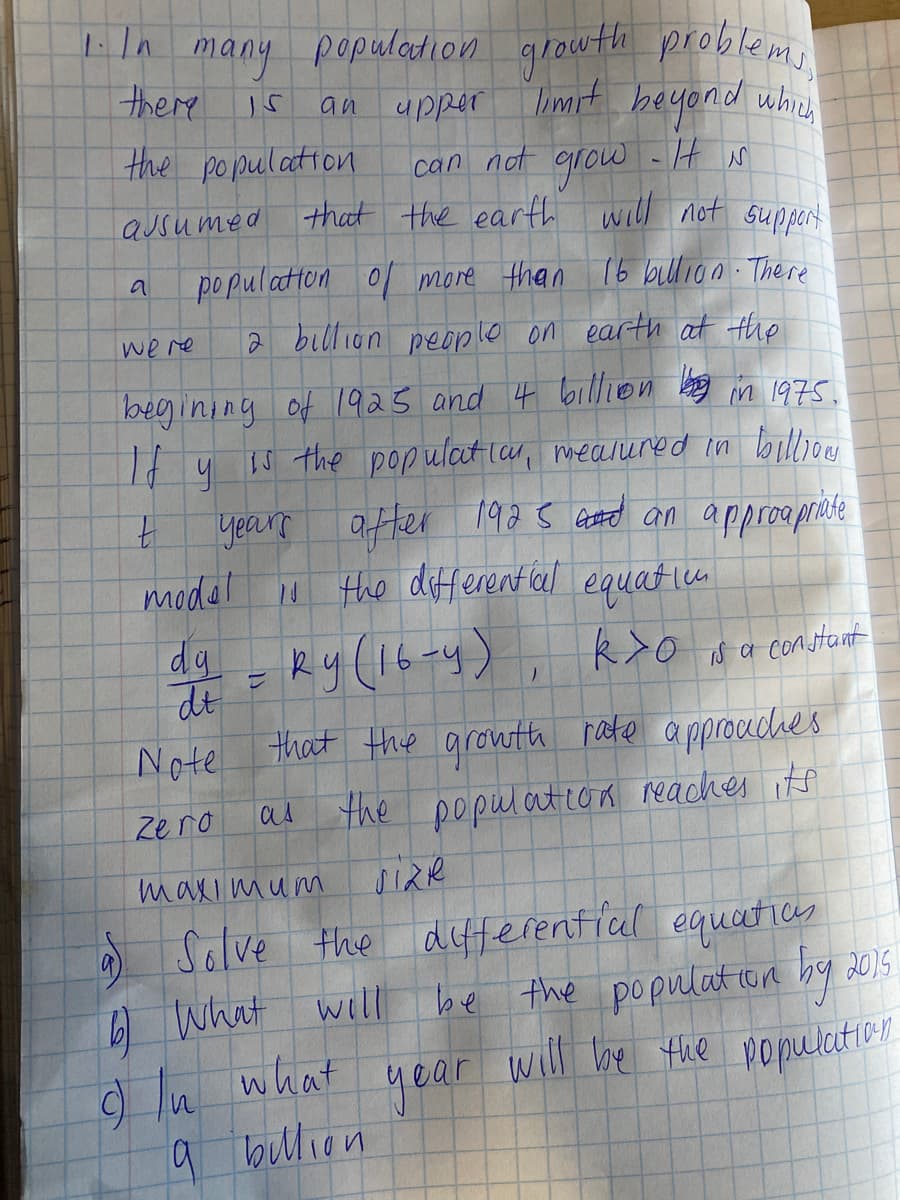 1. In many population growth problems,
there is an upper limit beyond which
the population can not grow - It is
assumed that the earth will not support
a population of more than 16 billion. There
were 2 billion people on earth at the
begining of 1925 and 4 billion in 1975.
If y is the population, measured in billions
t years after 1925 and an approapriate
model is the differential equation
dy/dt = ky(16-y), k>0 is a constant
Note that the growth rate approaches
zero as the population reaches its
maximum size
a) Solve the differential equation
b) What will be the population by 2015
c) In what year will be the population
9 billion